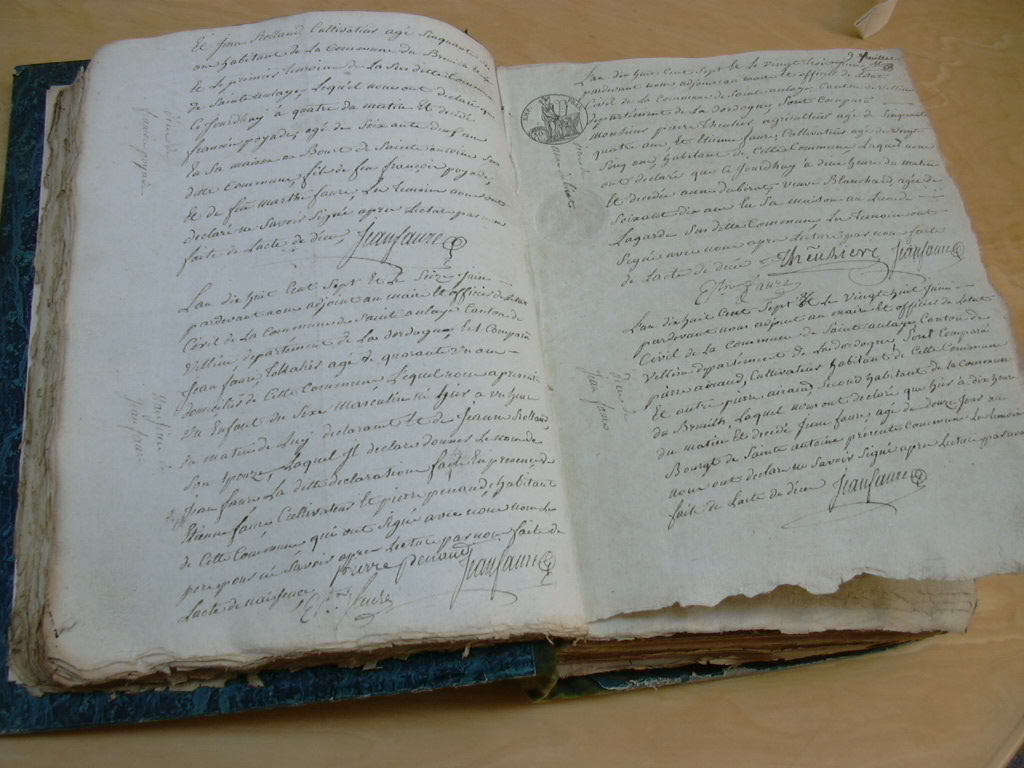 Et Jean Rolland Cultivateur agé Cinquante
an habitant de La Commune du Breuil
Et Le premier temoin de La Susditte Commune
de Sainte aulaye, Lequel nous ont declaré que
ce Jourdhuy à quatre du matin Et decedé
françois poyade, agé de Soixante dix an
En Sa maison au Bourt de Sainte antoine Sus
ditte Commune, fils de feu françois poyade,
Et de feu marthe faure, Les temoins nous ont
declaré ne Savoir Signé apres Lecture par nous
faite de Lacte de décé, Jean faure
Lan dix huit Cent Sept Et Le Seize Juin
pardevant nous adjoint au maire Et officier de Létat
Civil de La Commune de Saint aulaye Canton de
Villein, departement de La dordogne, Est Comparu
Jean faure, agé de quarante neuf an
domicilié de Cette Commune Lequel nous a presenté
un Enfant du Sexe Masculin né hier a une heure
du matin de Luy declarant Et de Jeanne Rolland
Son Epouze, Lequel Il declare donner Le nom de
Jean faure La ditte declaration faite En presence de
Etienne faure, Cultivateur Et pierre penaud, habitant
de Cette Commune qui ont Signé avec nous non Le
pere pour ne Savoir apres Lecture par nous faite de
Lacte de naissance, pierre penaud Jean faure
Et. faure
décé de
françois poyade
Naissance de
Jean faure
Lan dix huit Cent Sept Et Le Vingt trois Juin
pardevant nous adjoint au maire Et officier de Létat
Civil de La Commune de Sainte aulaye, Canton de Villein
departement de La dordogne, Sont Comparu
Monsieur pierre theulier agriculteur agé de Cinquante
quatre an, Et Etienne faure, Cultivateur agé de Vingt
Cinq an habitant de Cette Commune Lequel nous
ont declaré que Ce Jourdhuy à deux heure du matin
Et decedé, anne dabirat Veuve Blanchard, agée de
Soixante dix an En Sa maison au
Lagarde Sus ditte Commune Les temoin ont
Signé avec nous apres Lecture par nous faite
de Lacte de décé, Theulier Jean faure
Et. faure
décé de
anne dabirat
Lan dix huit Cent Sept Et Le Vingt huit Juin
pardevant nous adjoint au maire Et officier de Létat
Civil de La Commune de Sainte aulaye Canton de
Villein departement de Ladordogne, Sont Comparu
pierre airaud, Cultivateur habitant de Cette Commune
Et autre pierre airaud, Second habitant de La Commune
du Breuilh, Laquel nous ont declaré que hier à dix heure
du matin Et decedé Jean faure, agé de douze Jour au
Bourgt de Sainte antoine presente Commune Les temoin
nous ont declaré ne Savoir Signé apres Lecture par nous
faite de Lacte de décé Jean faure
décé de
Jean faure